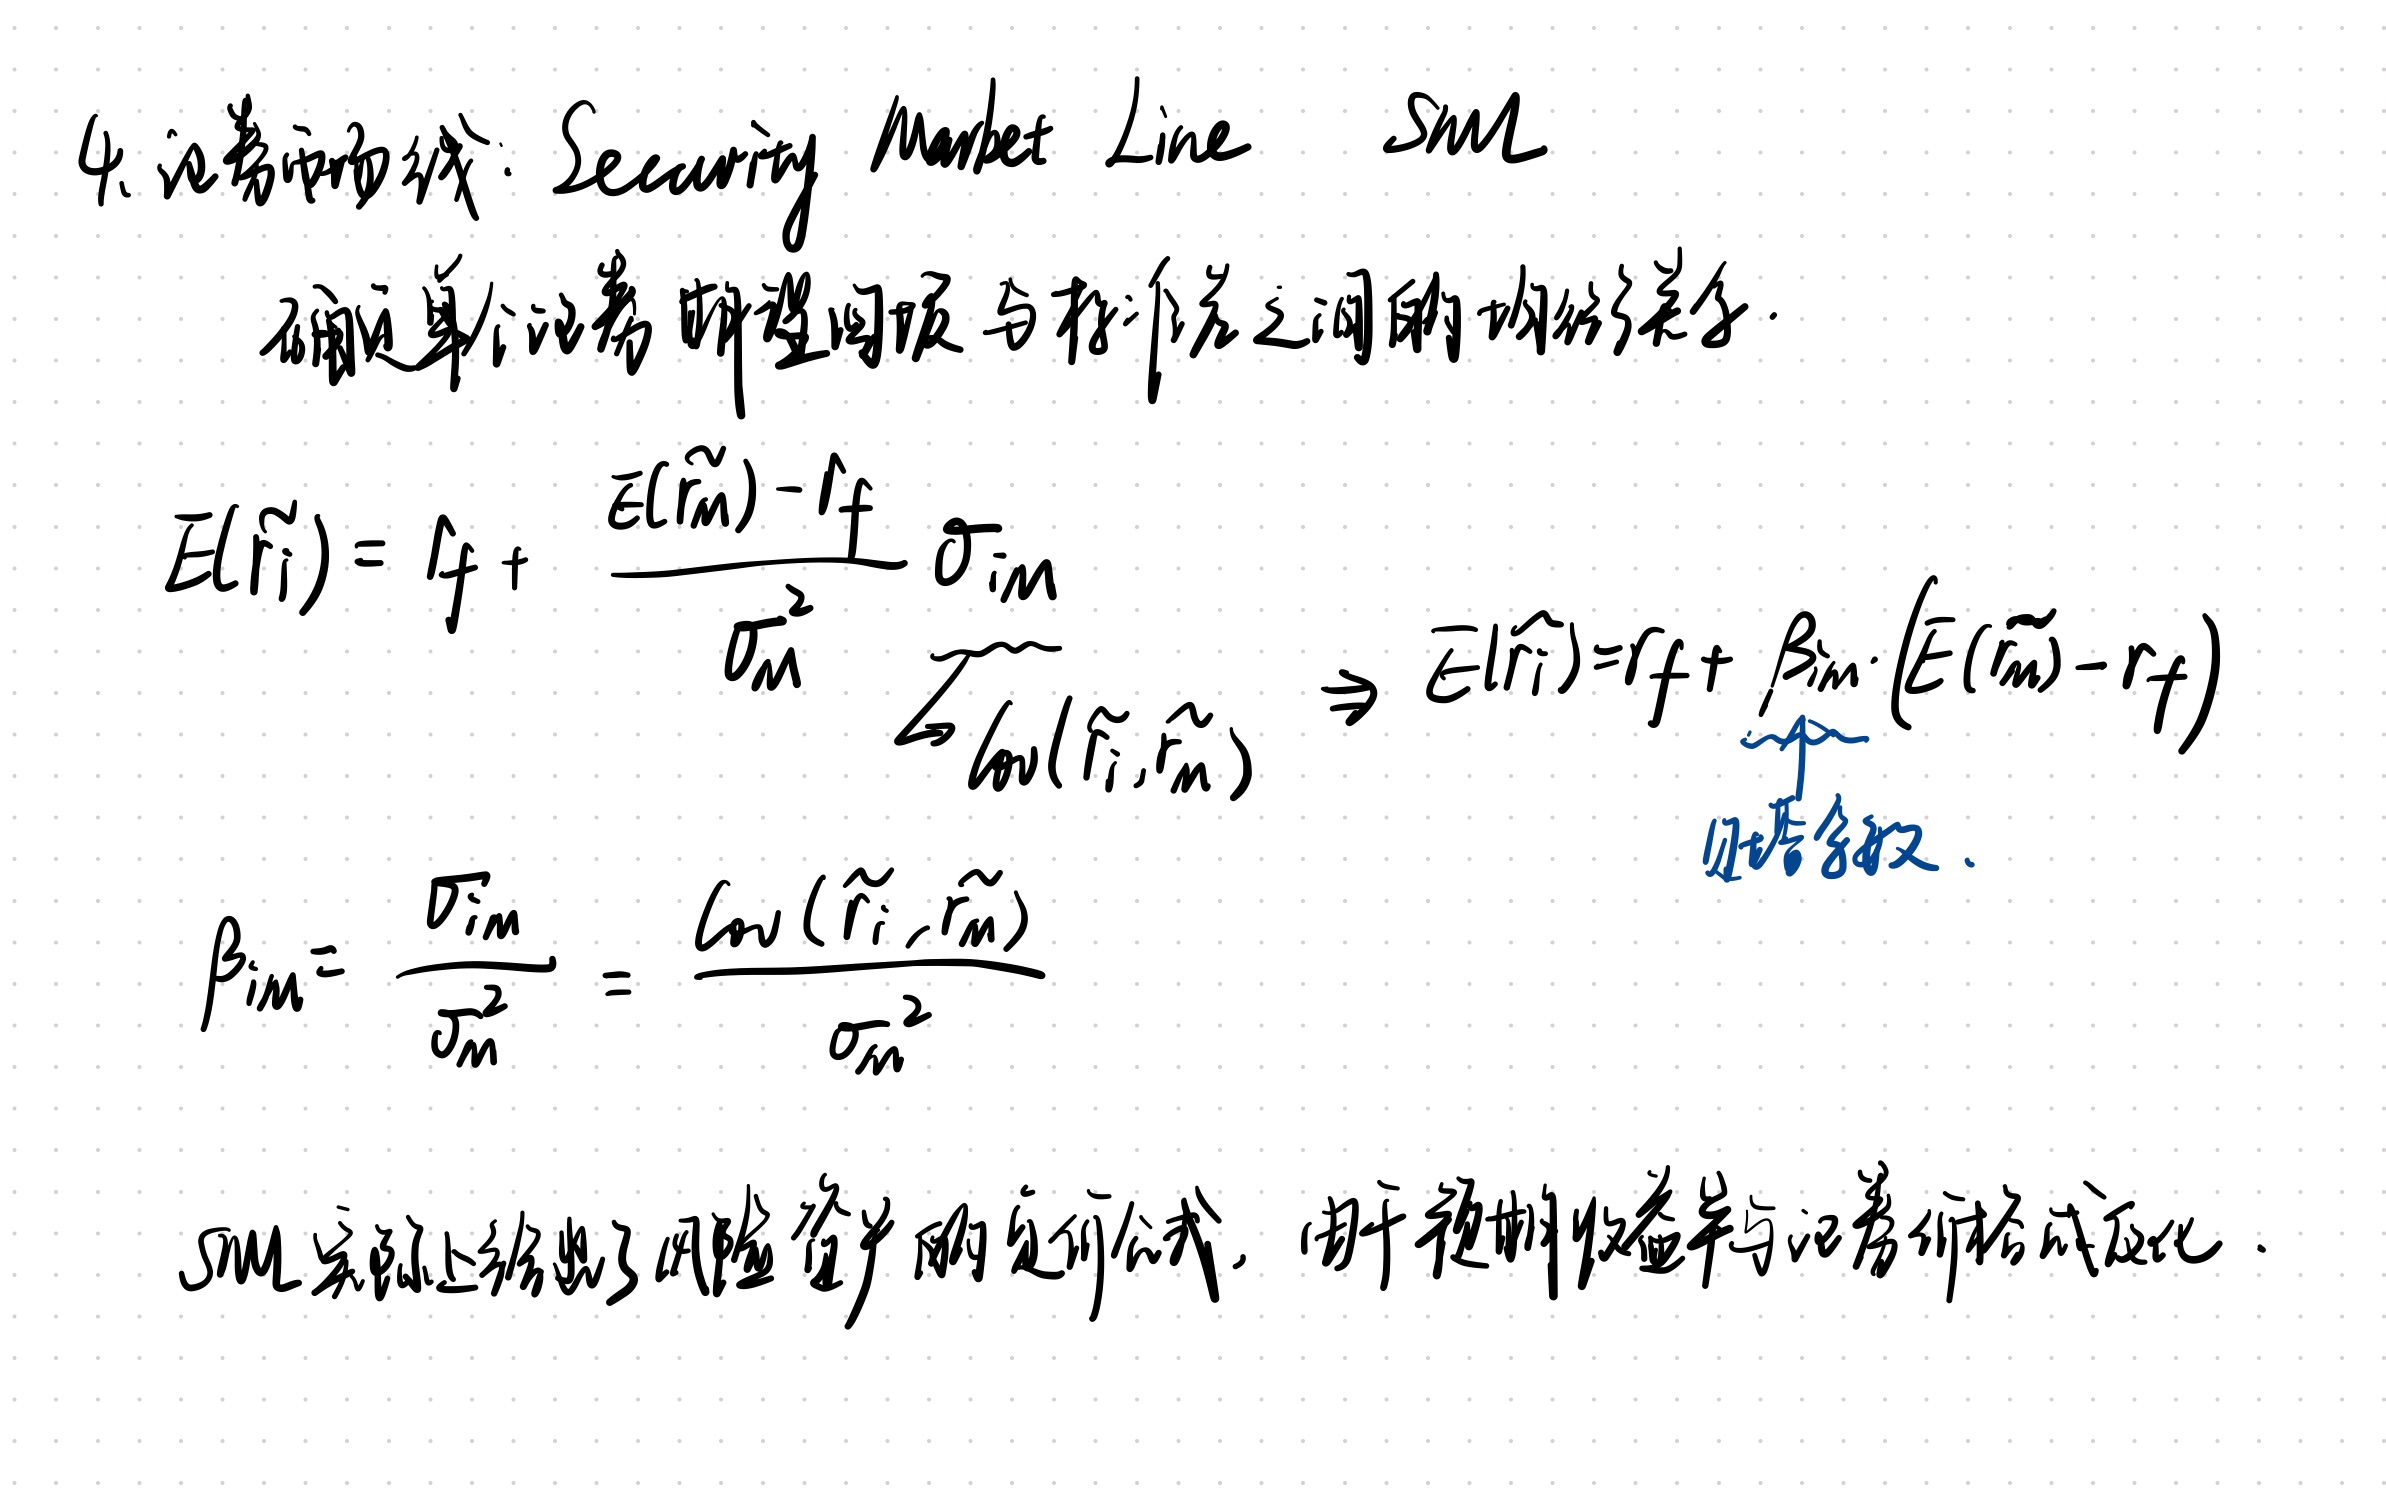 4. 证券市场线: Security Market Line SML
确定单个证券期望回报与标准差之间的均衡关系.
E(r̃i) = rf + (E(r̃m) - rf) / σm² σim
Cov(r̃i, r̃m)
⇒ E(r̃i) = rf + βim · (E(r̃m) - rf)
贝塔系数.
βim = σim / σm² = Cov(r̃i, r̃m) / σm²
SML 实际上给出了风险资产的定价公式, 用于预期收益率与证券价格